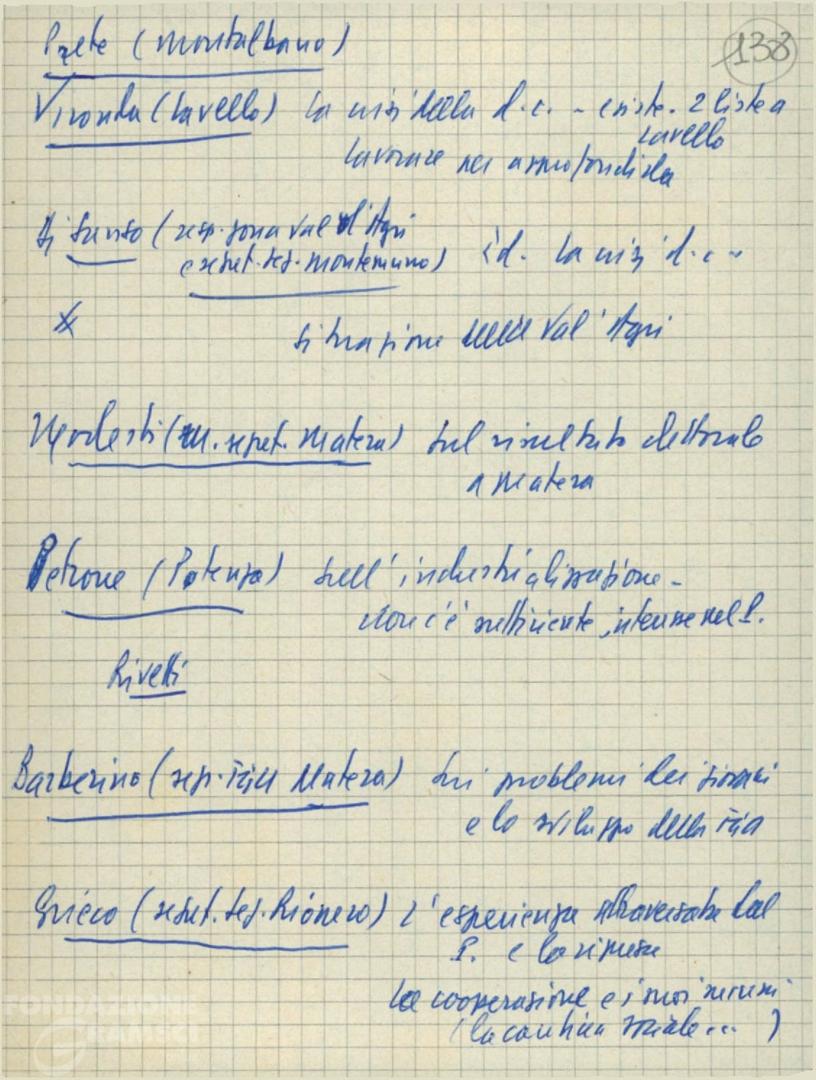 138
Prete (Montalbano)
Vironda (Lavello) la crisi della d.c. - esiste. 2 liste a
Lavello
lavorare per approfondirla
Di Sanso (resp. zona Val d'Agri
segret. sez. Montemurro) id. la crisi d.c. -
situazione della Val d'Agri
(segret. Matera) sul risultato elettorale
a Matera
Petrone (Potenza) sull'industrializzazione -
non c'è sufficiente interesse nel P.
Rivetti
Barberino (resp. Matera) sui problemi dei giovani
e lo sviluppo della
Grieco (segret. sez. Rionero) l'esperienza attraversata dal
P. e la ripresa
la cooperazione e i suoi successi
(la cantina sociale...)
FONDAZIONE
GRAMSCI